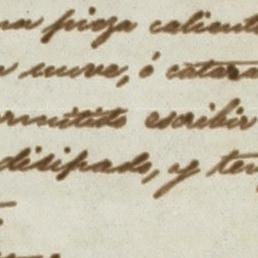 na pieza caliente
nueve, ó catara
ermitido escribir
disipado, y ten